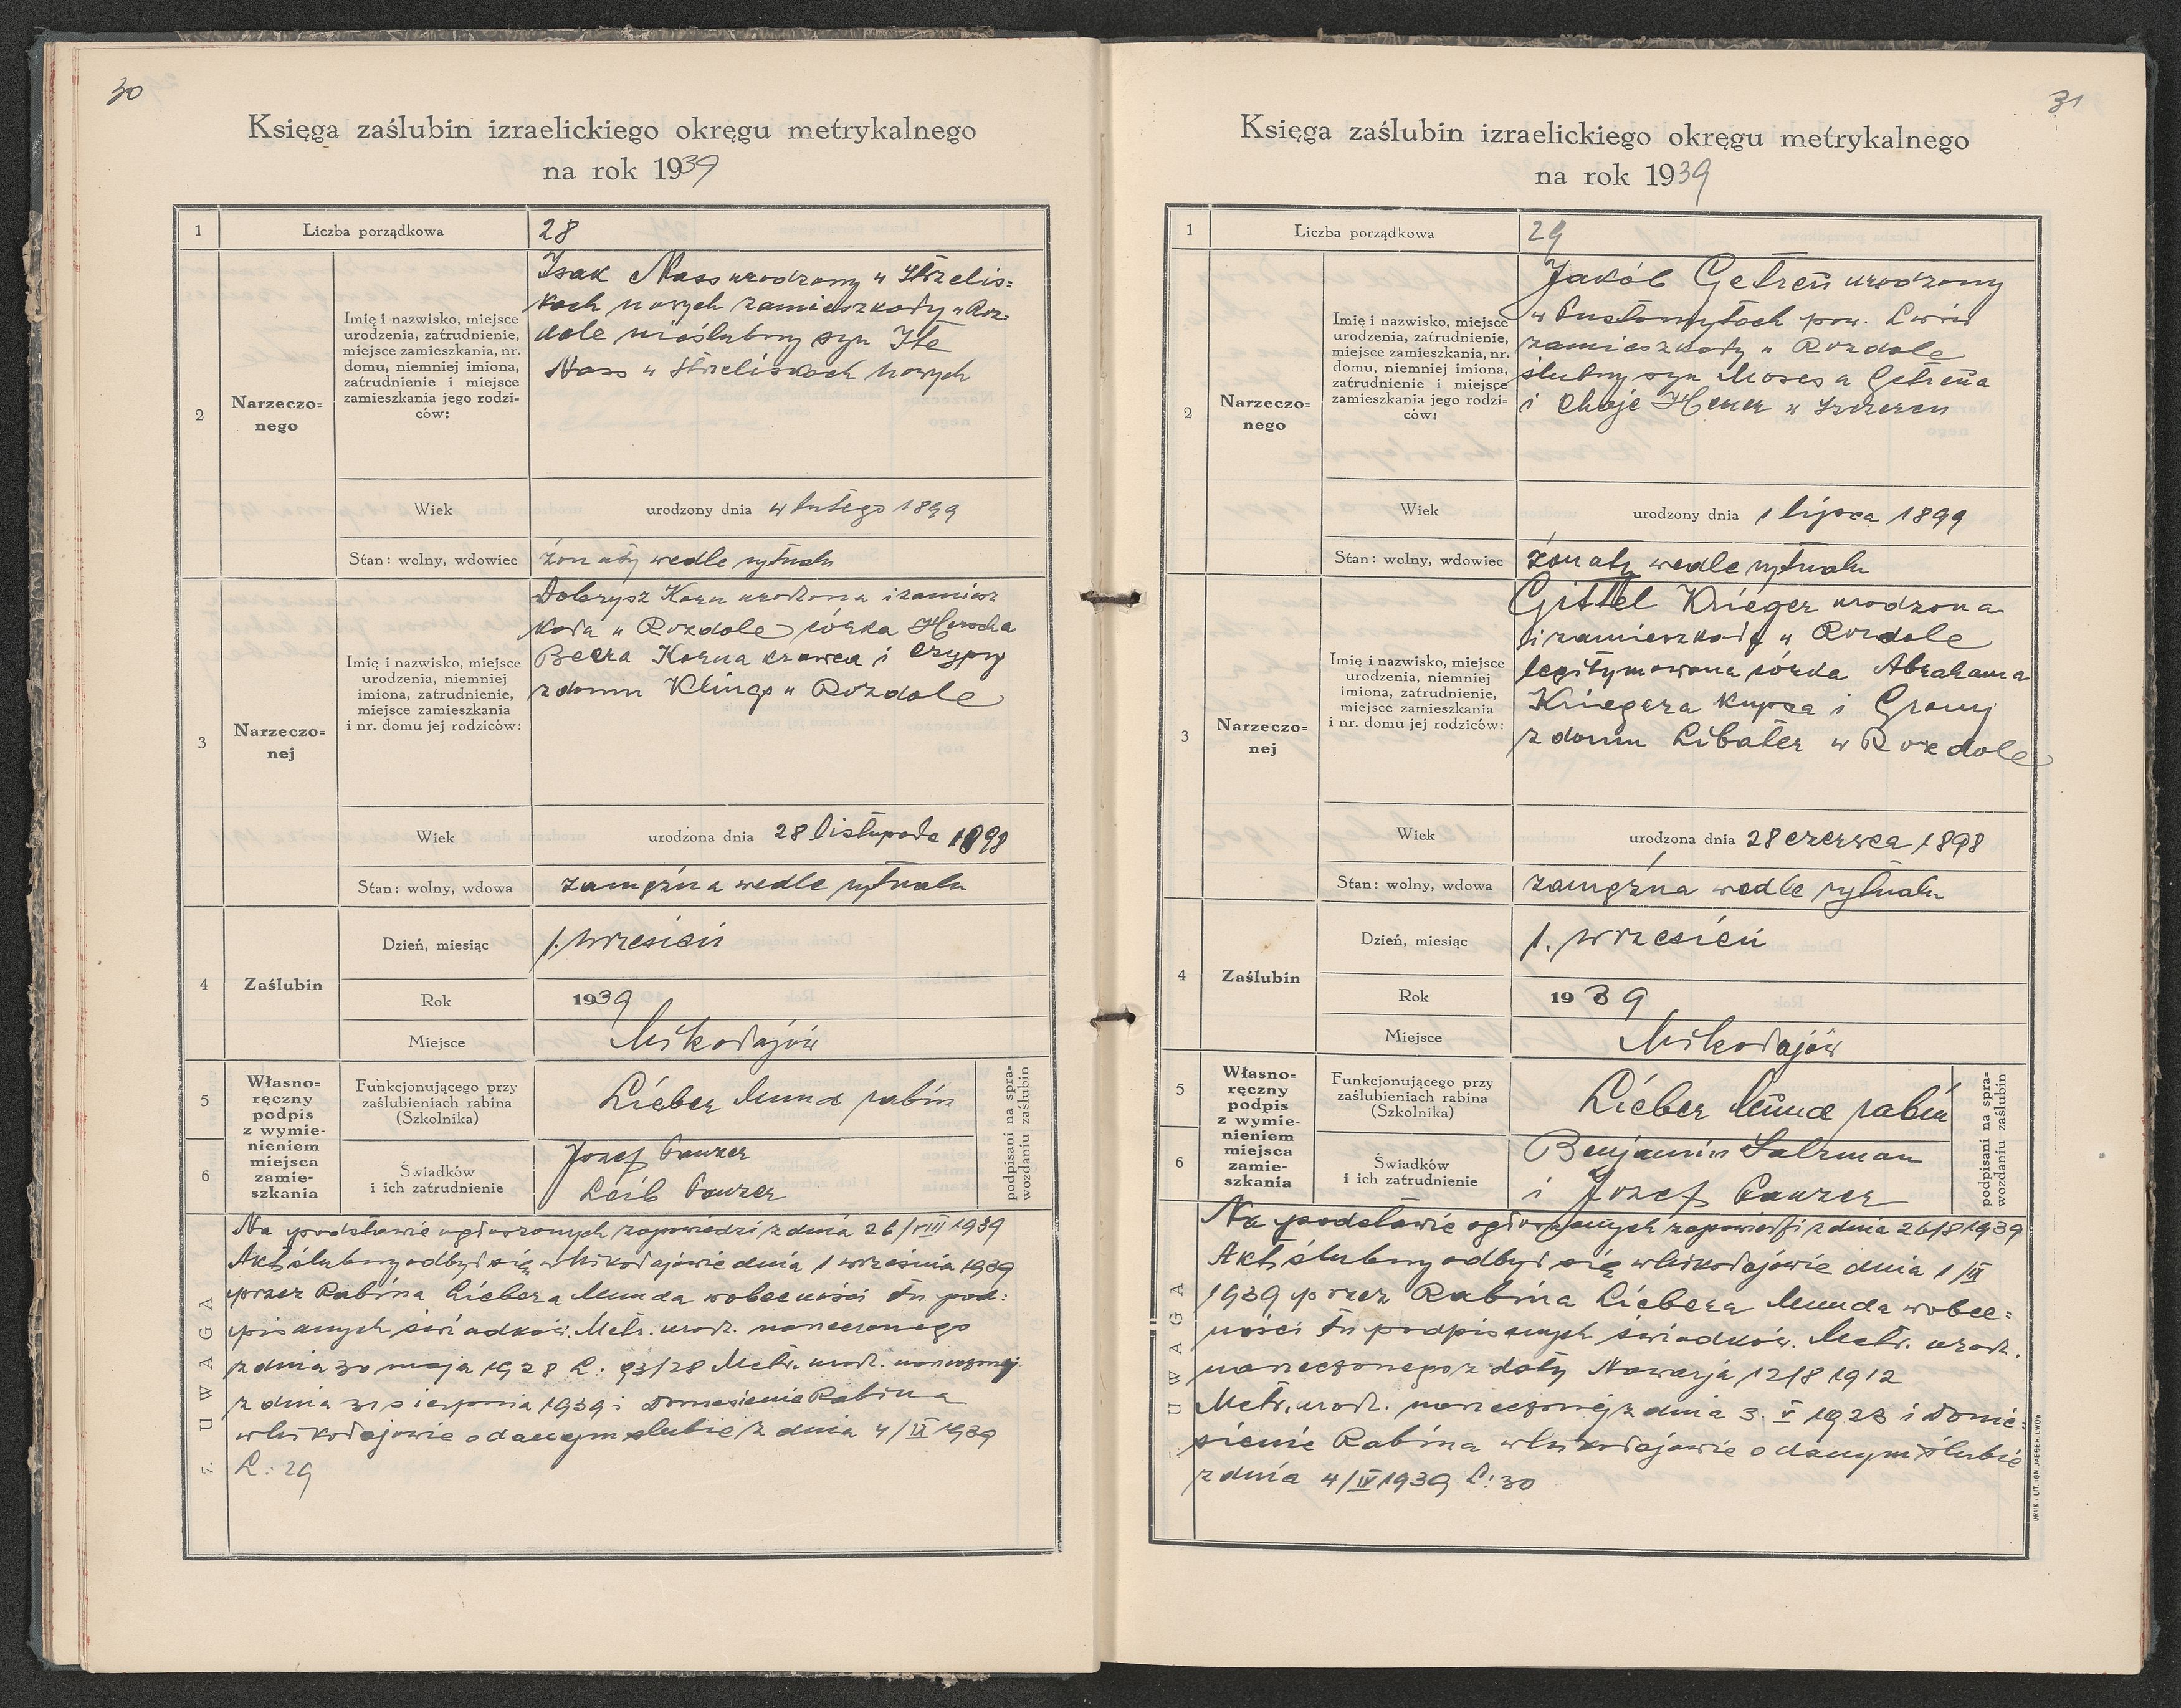 30
Księga zaślubin izraelickiego okręgu metrykalnego
na rok 1939
1
Liczba porządkowa
28
2
Narzeczo=
nego
Imię i nazwisko, miejsce
urodzenia, zatrudnienie,
miejsce zamieszkania, nr.
domu, niemniej imiona,
zatrudnienie i miejsce
zamieszkania jego rodzi-
ców:
Isak Nass urodzony w Strzelis=
kach nowych zamieszkały w Roz=
dole nieślubny syn Ite
Nass w Strzeliskach nowych
Wiek
urodzony dnia 4 lutego 1899
Stan: wolny, wdowiec
żonaty wedle rytuału
3
Narzeczo=
nej
Imię i nazwisko, miejsce
urodzenia, niemniej
imiona, zatrudnienie,
miejsce zamieszkania
i nr. domu jej rodziców:
Dobrysz Korn urodzona i zamiesz
kała w Rozdole córka
Beera Korna krawca i Czypy
z domu Kling w Rozdole
Wiek
urodzona dnia 28 listopada 1898
Stan: wolny, wdowa
zamężna wedle rytuału
4
Zaślubin
Dzień, miesiąc
1. wrzesień
Rok
1939
Miejsce
Mikołajów
5
6
Własno=
ręczny
podpis
z wymie-
nieniem
miejsca
zamie-
szkania
Funkcjonującego przy
zaślubieniach rabina
(Szkolnika)
Lieber Mund rabin
Świadków
i ich zatrudnienie
Jozef Panzer
Leib Panzer
podpisani na spra-
wozdaniu zaślubin
7. UWAGA
Na podstawie ogłoszonych zapowiedzi z dnia 26/VIII 1939
Akt ślubny odbył się w Mikołajowie dnia 1 września 1939
przez Rabina Liebera Munda wobecności tu pod=
pisanych świadków. Metr. urodz. narzeczonego
z dnia 30 maja 1928 L: 93/28 Metr. urodz. narzeczonej
z dnia 31 sierpnia 1939 i Doniesienie Rabina
w Mikołajowie o danym slubie z dnia 4/IX 1939
L: 29
31
Księga zaślubin izraelickiego okręgu metrykalnego
na rok 1939
1
Liczba porządkowa
29
2
Narzeczo=
nego
Imię i nazwisko, miejsce
urodzenia, zatrudnienie,
miejsce zamieszkania, nr.
domu, niemniej imiona,
zatrudnienie i miejsce
zamieszkania jego rodzi-
ców:
Jakób Getreu urodzony
w Pustomytach pow. Lwów
zamieszkały w Rozdole
ślubny syn Mosesa Getreua
i Chaje w Szczercu
Wiek
urodzony dnia 1 lipca 1899
Stan: wolny, wdowiec
żonaty wedle rytuału
3
Narzeczo=
nej
Imię i nazwisko, miejsce
urodzenia, niemniej
imiona, zatrudnienie,
miejsce zamieszkania
i nr. domu jej rodziców:
Gittel Krieger urodzona
i zamieszkała w Rozdole
legitymowana córka Abrahama
Kriegera kupca i
z domu Libater w Rozdole
Wiek
urodzona dnia 28 czerwca 1898
Stan: wolny, wdowa
zamężna wedle rytuału
4
Zaślubin
Dzień, miesiąc
1. wrzesień
Rok
1939
Miejsce
Mikołajów
5
6
Własno=
ręczny
podpis
z wymie-
nieniem
miejsca
zamie-
szkania
Funkcjonującego przy
zaślubieniach rabina
(Szkolnika)
Lieber Mund rabin
Świadków
i ich zatrudnienie
Benjamin Salzman
i Jozef Panzer
podpisani na spra-
wozdaniu zaślubin
7. UWAGA
Na podstawie ogłoszonych zapowiedzi z dnia 26/8 1939
Akt ślubny odbył się w Mikołajowie dnia 1/IX
1939 przez Rabina Liebera Munda wobec=
ności tu podpisanych świadków. Metr. urodz.
narzeczonego z daty Nawarja 12/8 1912
Metr. urodz. narzeczonej z dnia 3. V 1923 i Donie=
sienie Rabina w Mikołajowie o danym ślubie
z dnia 4/IV 1939 L: 30
DRUK. I LIT. IGN. JAEGER, LWÓW